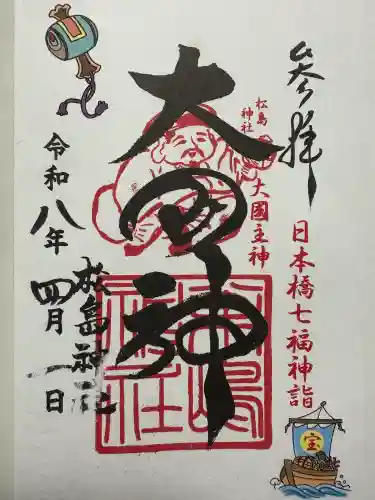 参拝
日本橋七福神詣
松島神社
大國主神
大国神
松島神社
令和八年
四月一日
松島神社
宝